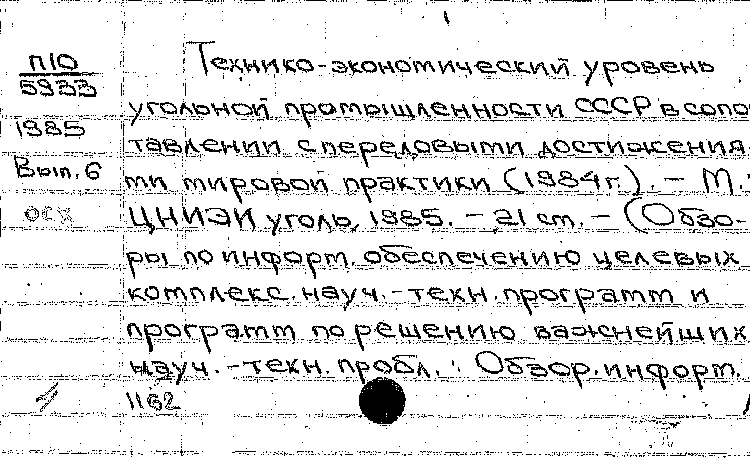 П10
5933
1985
Вып. 6
осх
Технико-экономический уровень
угольной промышленности СССР в сопо
тавлении с передовыми достижения-
ми мировой практики (1984г.). – М.:
ЦНИЭИуголь, 1985. – 21 ст. – (Обзо-
ры по информ. обеспечению целевых
комплекс. науч.-техн. программ и
программ по решению важнейших
науч.-техн. пробл.: Обзор. информ.
1162